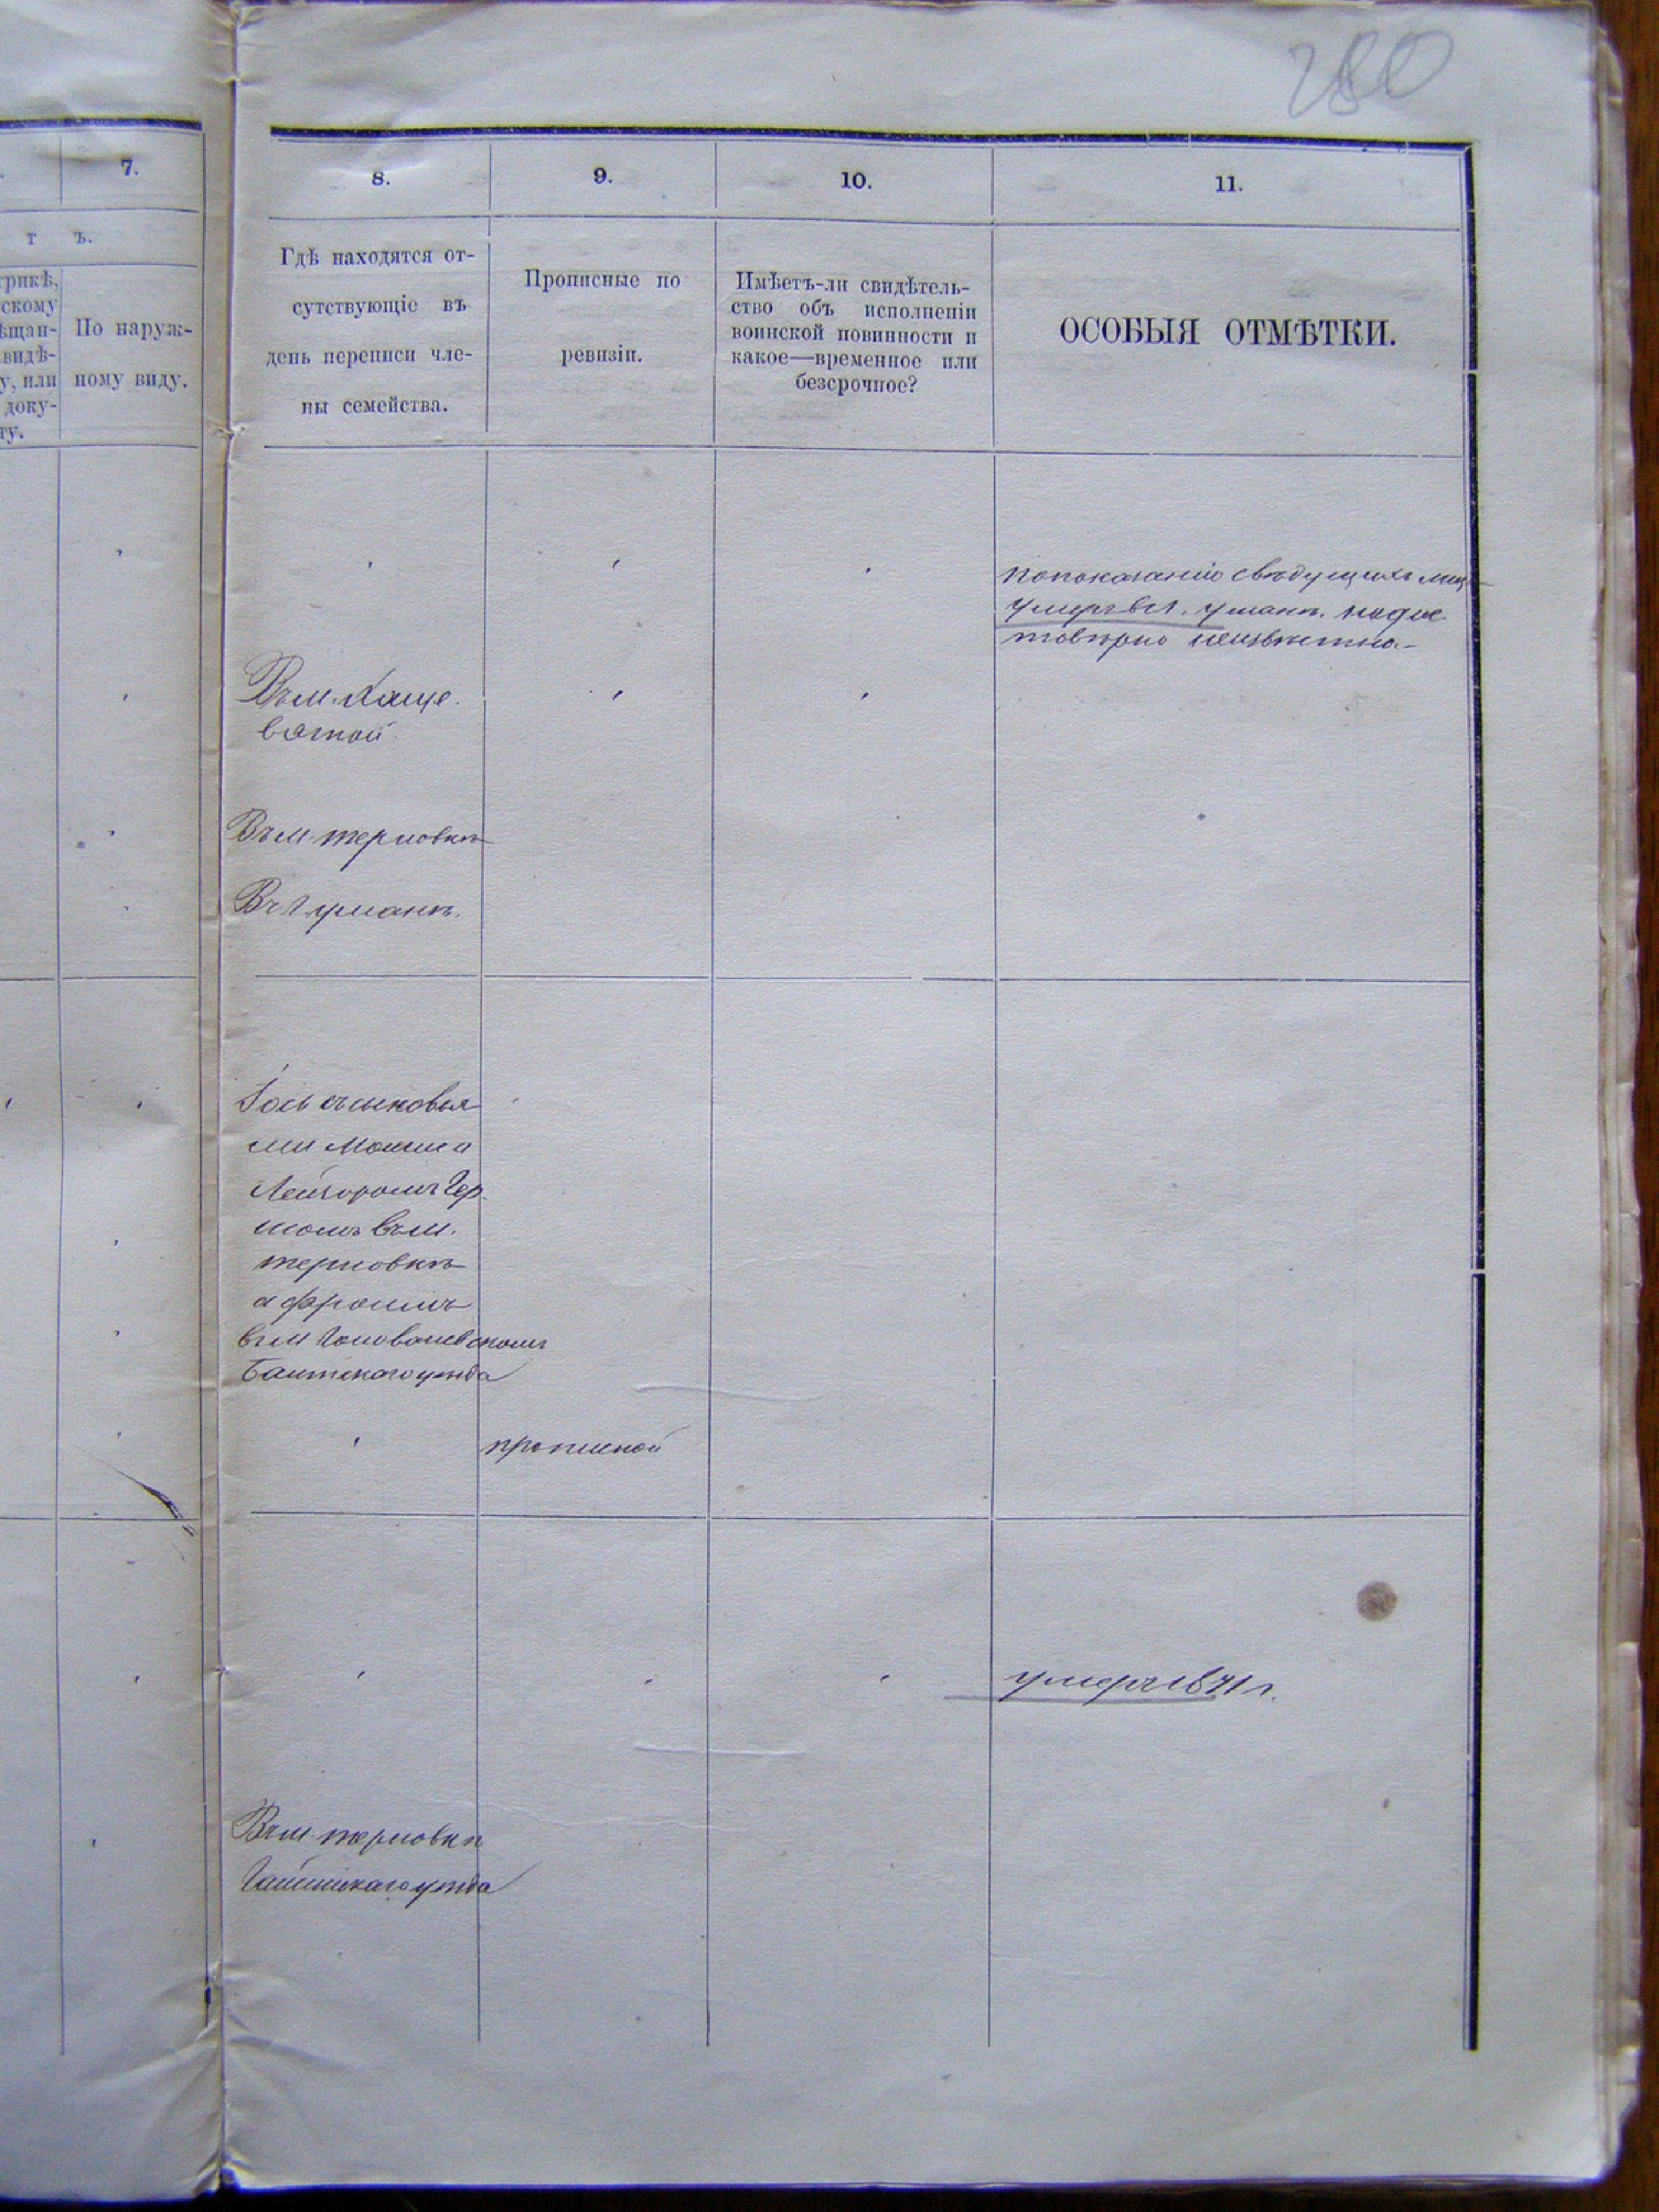 280
7.
8.
9.
10.
11.
т ъ.
трикѣ,
скому
ѣщан-
видѣ-
у, или
доку-
ту.
По наруж-
ному виду.
Гдѣ находятся от-
сутствующіе въ
день переписи чле-
ны семейства.
Прописные по
ревизіи.
Имѣетъ-ли свидѣтель-
ство объ исполненіи
воинской повинности и
какое—временное или
безсрочное?
ОСОБЫЯ ОТМѢТКИ.
попоказанію свѣдущихъ лиц
умеръ в г. умани. но дос
товѣрно неизвѣстно.
Въ м. Хаще
ватой
Въ м. терновкѣ
Въ г уманѣ.
сыновья
ми Мошко и
Лейзоромъ Гер
шомъ въ м.
терновкѣ
а фроимъ
въ м Голованевскомъ
Балтскаго уѣзда
прописной
умеръ 1871 г.
Въ м. терновкѣ
Гайсинскаго уѣзда